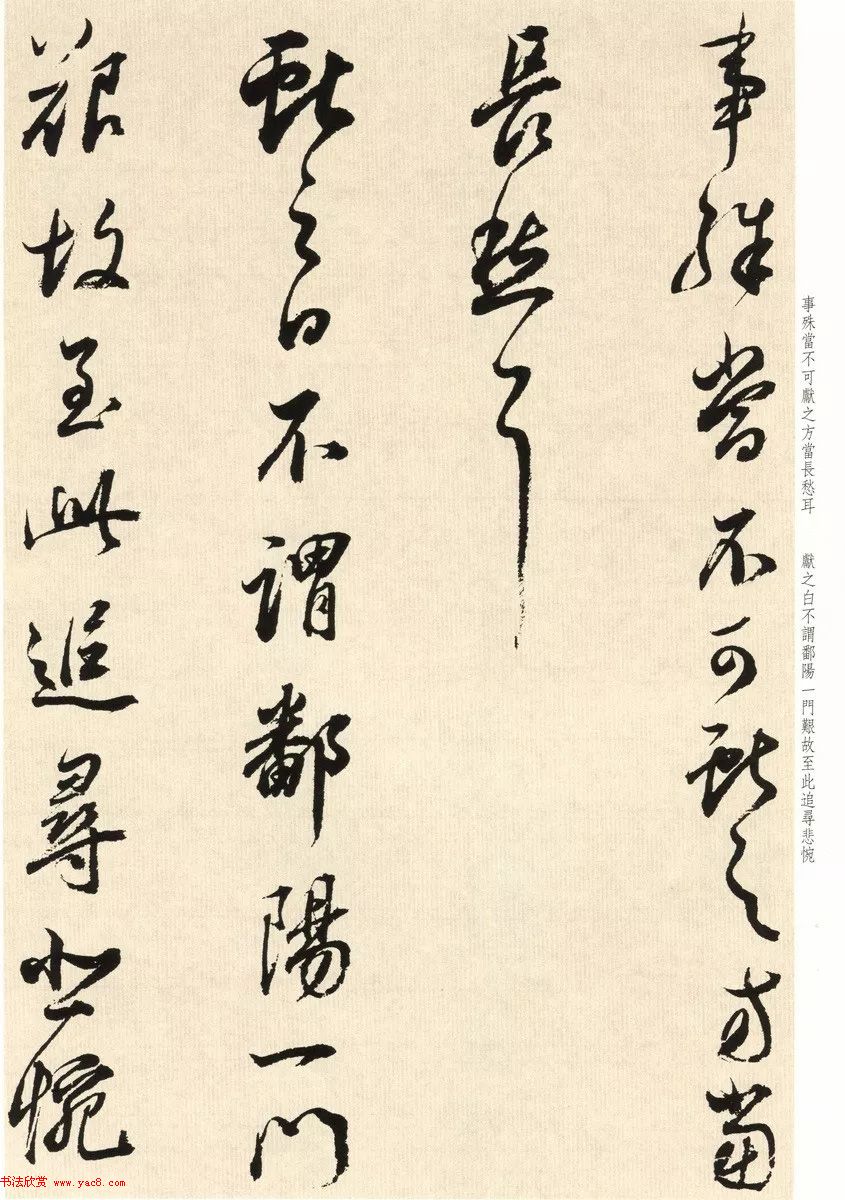 事殊當不可獻之方當
長愁耳
獻之白不謂鄱陽一門
艱故至此追尋悲惋
事殊當不可獻之方當長愁耳 獻之白不謂鄱陽一門艱故至此追尋悲惋
书法欣赏 www.yac8.com